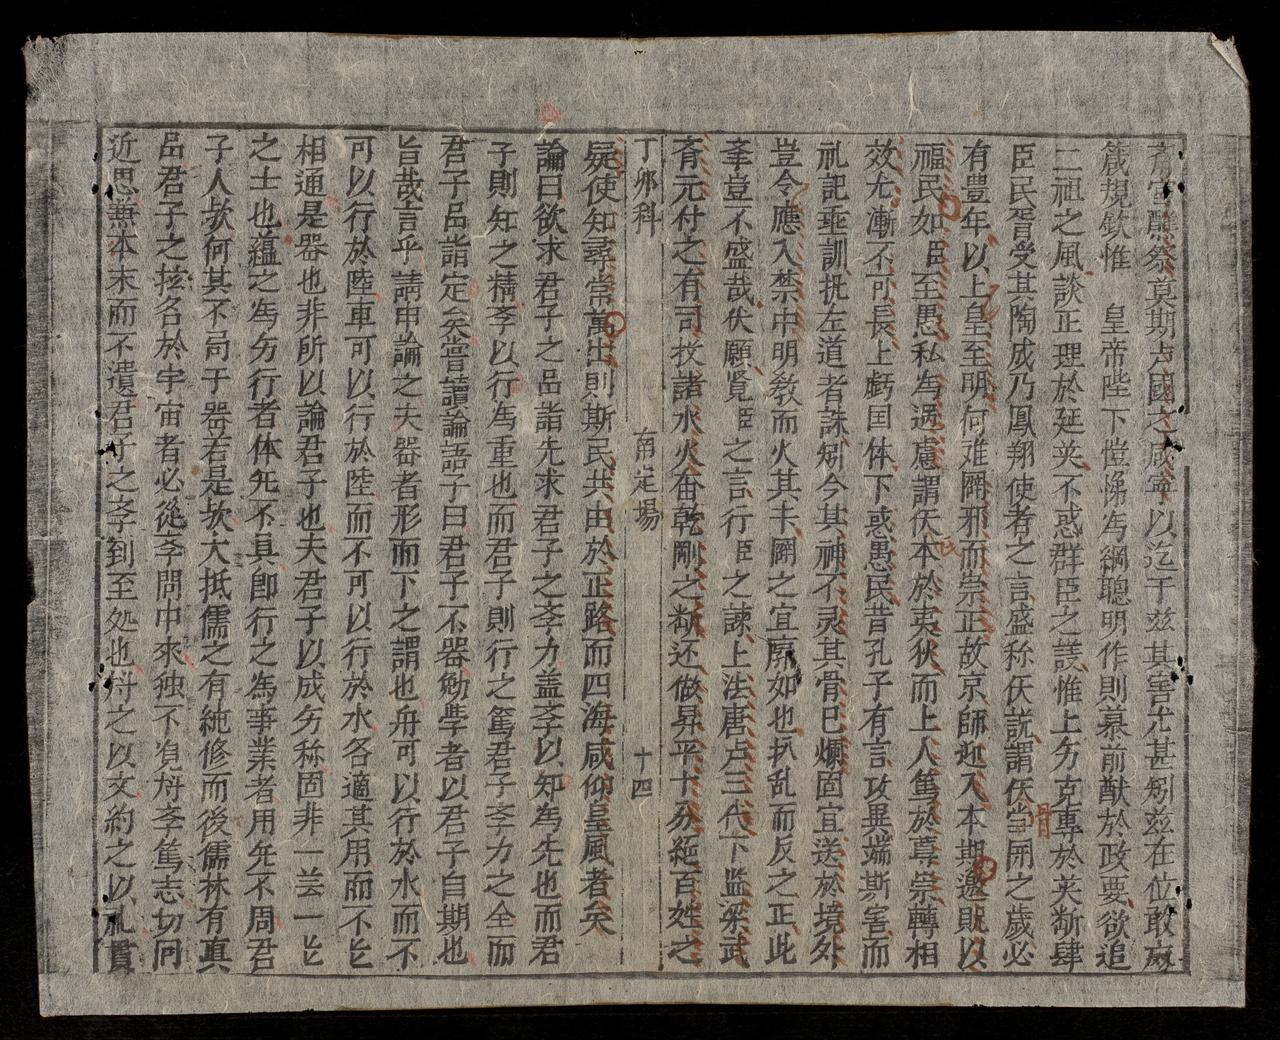 齋宮醮祭莫期占國之咸寧以迄于玆其害尤甚矧玆在位敢
箴規欽惟　皇帝陛下愷悌為綱聰明作則慕前猷於政要欲追
二祖之風談正理於延英不惑群臣之議惟上方克專於英断肆
臣民胥受其陶成乃鳳翔使者之言盛称仸說謂仸當開之歲必
有豊年以上皇至明何难闢邪而崇正故京師迎入本期邀貺以
福民如臣至愚私為過慮謂仸本於夷狄而上人篤於尊崇轉相
效尤漸不可長上虧囯体下惑愚民昔孔子有言攻異端斯害而
礼記垂訓执左道者誅矧今其神不灵其骨已爛固宜送於境外
豈令應入禁中明教而火其丰闢之宜廓如也扒乱而反之正此
李豈不盛哉伏願覧臣之言行臣之諫上法唐卢三代下监梁武
斉元付之有司投諸水火奋乾剛之断还做昇平十分絶百姓之
丁夘科　　　南定場　　　十四
疑使知尋常萬出則斯民共由於正路而四海咸仰皇風者矣
論曰欲求君子之品詣先求君子之斈力盖斈以知為先也而君
子則知之精斈以行為重也而君子則行之篤君子斈力之全而
君子品詣定矣嘗讀論語子曰君子不器勉學者以君子自期也
旨哉言乎請申論之夫器者形而下之謂也舟可以行於水而不
可以行於陸車可以行於陸而不可以行於水各適其用而不㠯
相通是器也非所以論君子也夫君子以成方称固非一芸一㠯
之士也蘊之為方行者体旡不具卽行之為事業者用旡不周君
子人欤何其不局于器若是欤大抵儒之有純修而後儒林有真
品君子之㧕名於宇宙者必從斈問中來独不覓夫斈篤志切问
近思兼本末而不遺君子之斈到至処也特之以文約之以礼貫